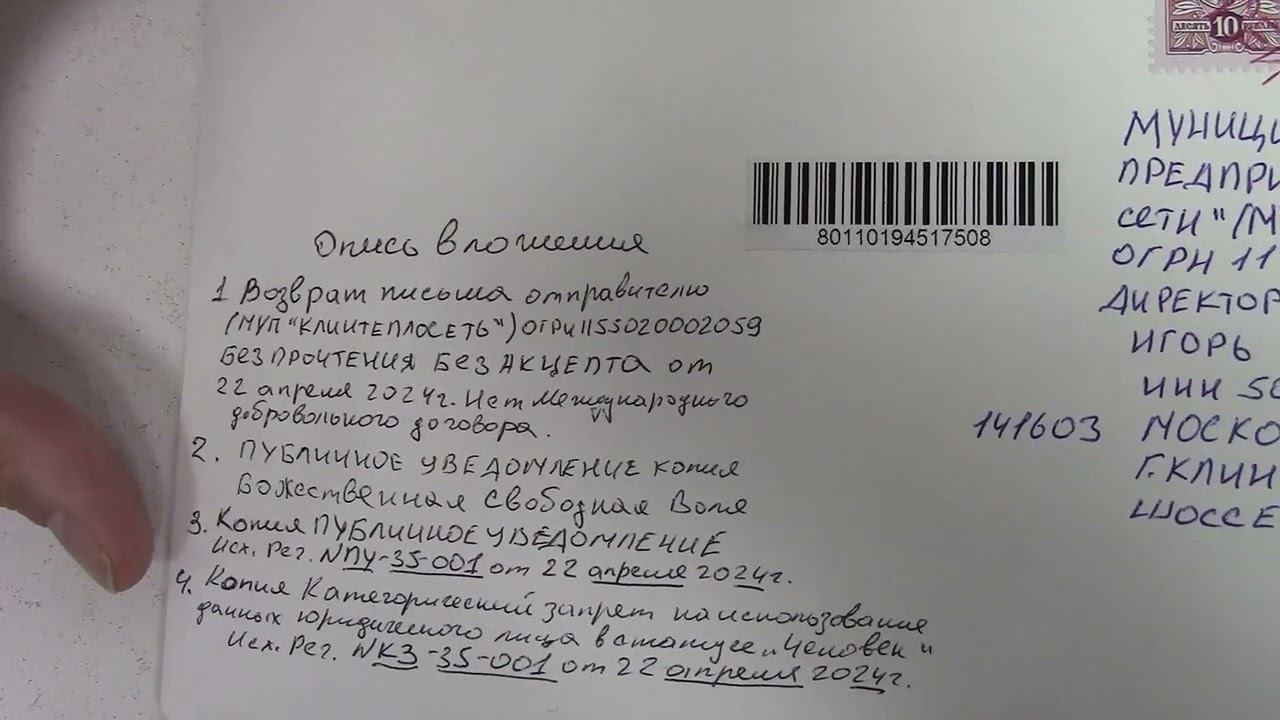 ДЕСЯТЬ 10 РУБЛЕЙ
80110194517508
Опись вложения
1 Возврат письма отправителю
(МУП "КЛИНТЕПЛОСЕТЬ") ОГРН1155020002059
БЕЗ ПРОЧТЕНИЯ БЕЗ АКЦЕПТА от
22 апреля 2024г. Нет Международного
добровольного договора.
2. ПУБЛИЧНОЕ УВЕДОМЛЕНИЕ копия
Божественная Свободная Воля
3. Копия ПУБЛИЧНОЕ УВЕДОМЛЕНИЕ
Исх. Рег. NПУ-35-001 от 22 апреля 2024г.
4. Копия Категорический запрет на использование
данных юридического лица в статусе „Человек"
Исх. Рег. NКЗ-35-001 от 22 апреля 2024г.
МУНИЦИ
ПРЕДПРИ
СЕТИ" (М
ОГРН 11
ДИРЕКТОР
ИГОРЬ
ИНН 50
141603 МОСКО
Г.КЛИН
ШОССЕ